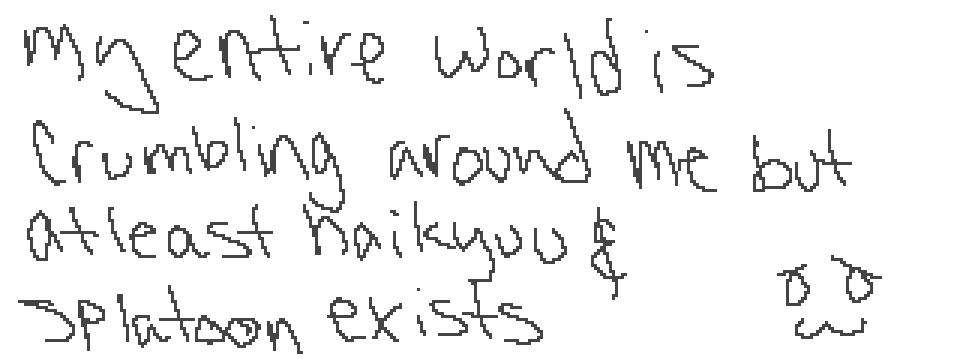 My entire world is
Crumbling around me but
atleast haikyuu &
Splatoon exists